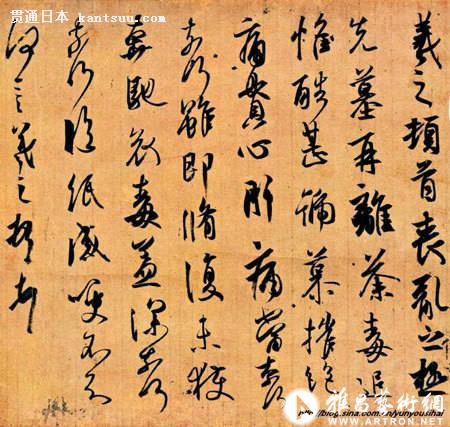 贯通日本 kantsuu.com
羲之頓首喪亂之極
先墓再離荼毒追
惟酷甚號慕摧絕
痛貫心肝痛當奈何
奈何雖即脩復未獲
奔馳哀毒益深奈何
奈何臨紙感哽不知
何言羲之頓首頓首
http://blog.sina.com.cn/yunyousihai
雅昌藝術網
WWW.ARTRON.NET